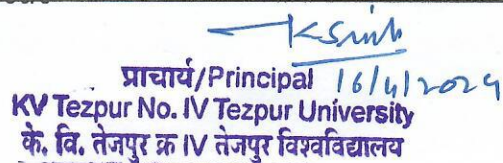 प्राचार्य/Principal 16/4/2024
KV Tezpur No. IV Tezpur University
के. वि. तेजपुर क्र IV तेजपुर विश्वविद्यालय